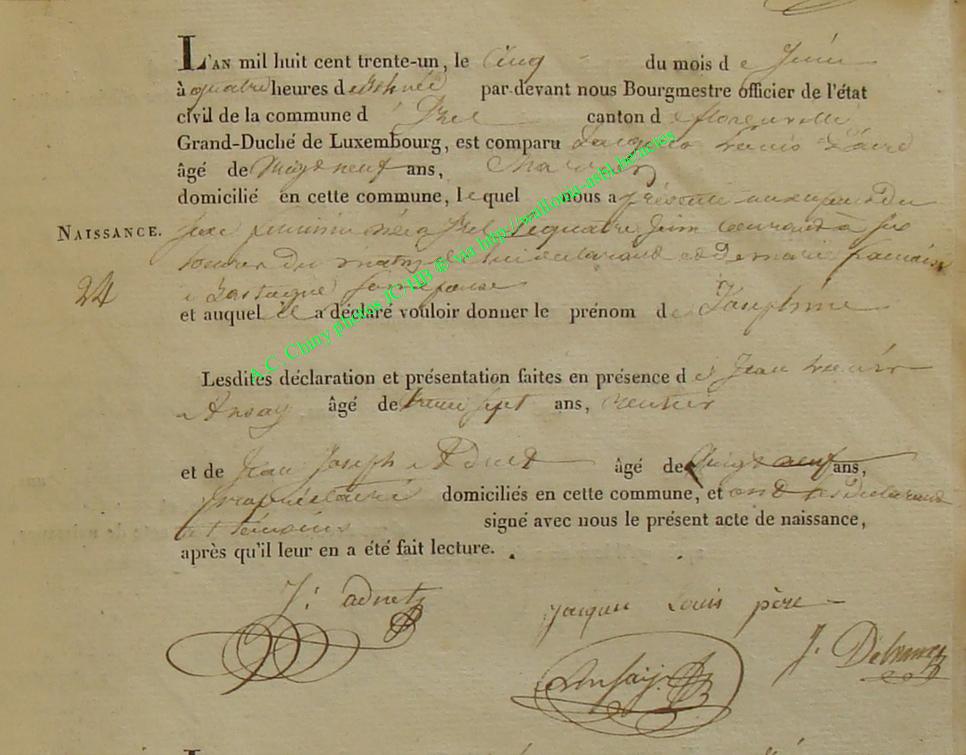 L'AN mil huit cent trente-un, le Cinq du mois de Juin
à quatre heures de par-devant nous Bourgmestre officier de l'état
civil de la commune d canton de florenville
Grand-Duché de Luxembourg, est comparu Jacques Louis
âgé de vingt neuf ans,
domicilié en cette commune, lequel nous a présenté un enfant du
NAISSANCE. sexe féminin née à le quatre Juin courant à six
24 heures du matin de lui déclarant et de marie
Lastaigne son épouse
et auquel il a déclaré vouloir donner le prénom de Josephine
Lesdites déclaration et présentation faites en présence de Jean
Ansay âgé de trente sept ans, rentier
et de Jean Joseph Adnet âgé de vingt neuf ans,
propriétaire domiciliés en cette commune, et ont les déclarant
et témoins signé avec nous le présent acte de naissance,
après qu'il leur en a été fait lecture.
J. adnet
Jacques Louis père
Ansay
J.
A.C. Chiny photos JC/HB © via http://wallonia-asbl.be/actes